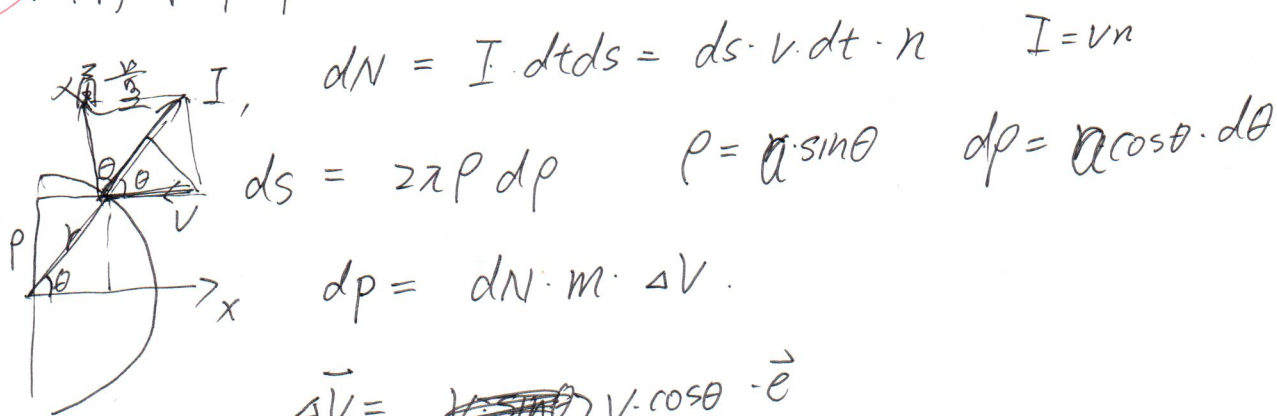 dN = I·dtds = ds·v·dt·n I = vn
I,
ds = 2πρdρ ρ = a·sinθ dρ = acosθ·dθ
θ θ
v
ρ r
θ
x
dp = dN·m·△V.
△V⃗ = v·cosθ·e⃗